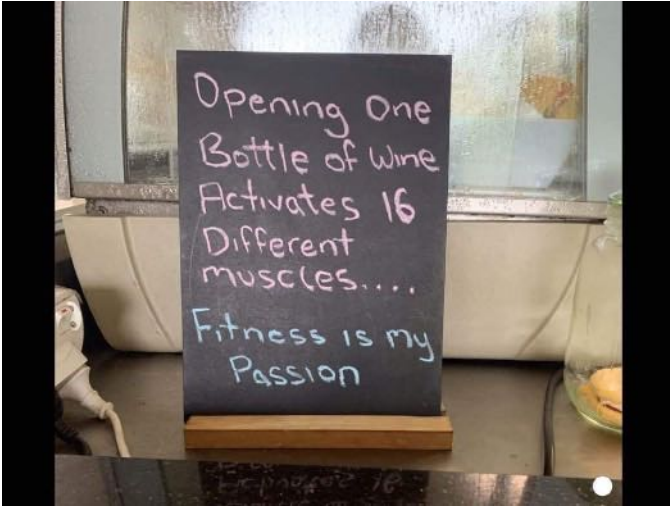 Opening One
Bottle of Wine
Activates 16
Different
muscles....
Fitness is my
Passion